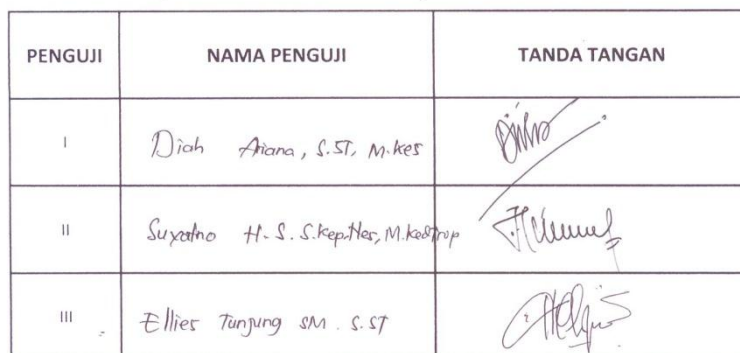 PENGUJI NAMA PENGUJI TANDA TANGAN
I Diah Ariana, S.ST, M.Kes
II H.S. S.Kep.Ners, M.KedTrop
III Ellies Tunjung SM. S.ST